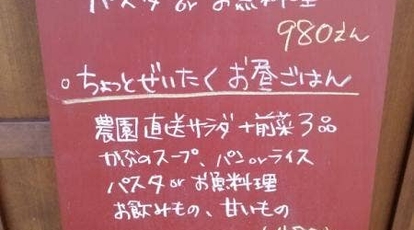 パスタ or お魚料理
980えん
○ちょっとぜいたく お昼ごはん
農園直送サラダ+前菜3品
かぶのスープ、パンorライス
パスタ or お魚料理
お飲みもの、甘いもの